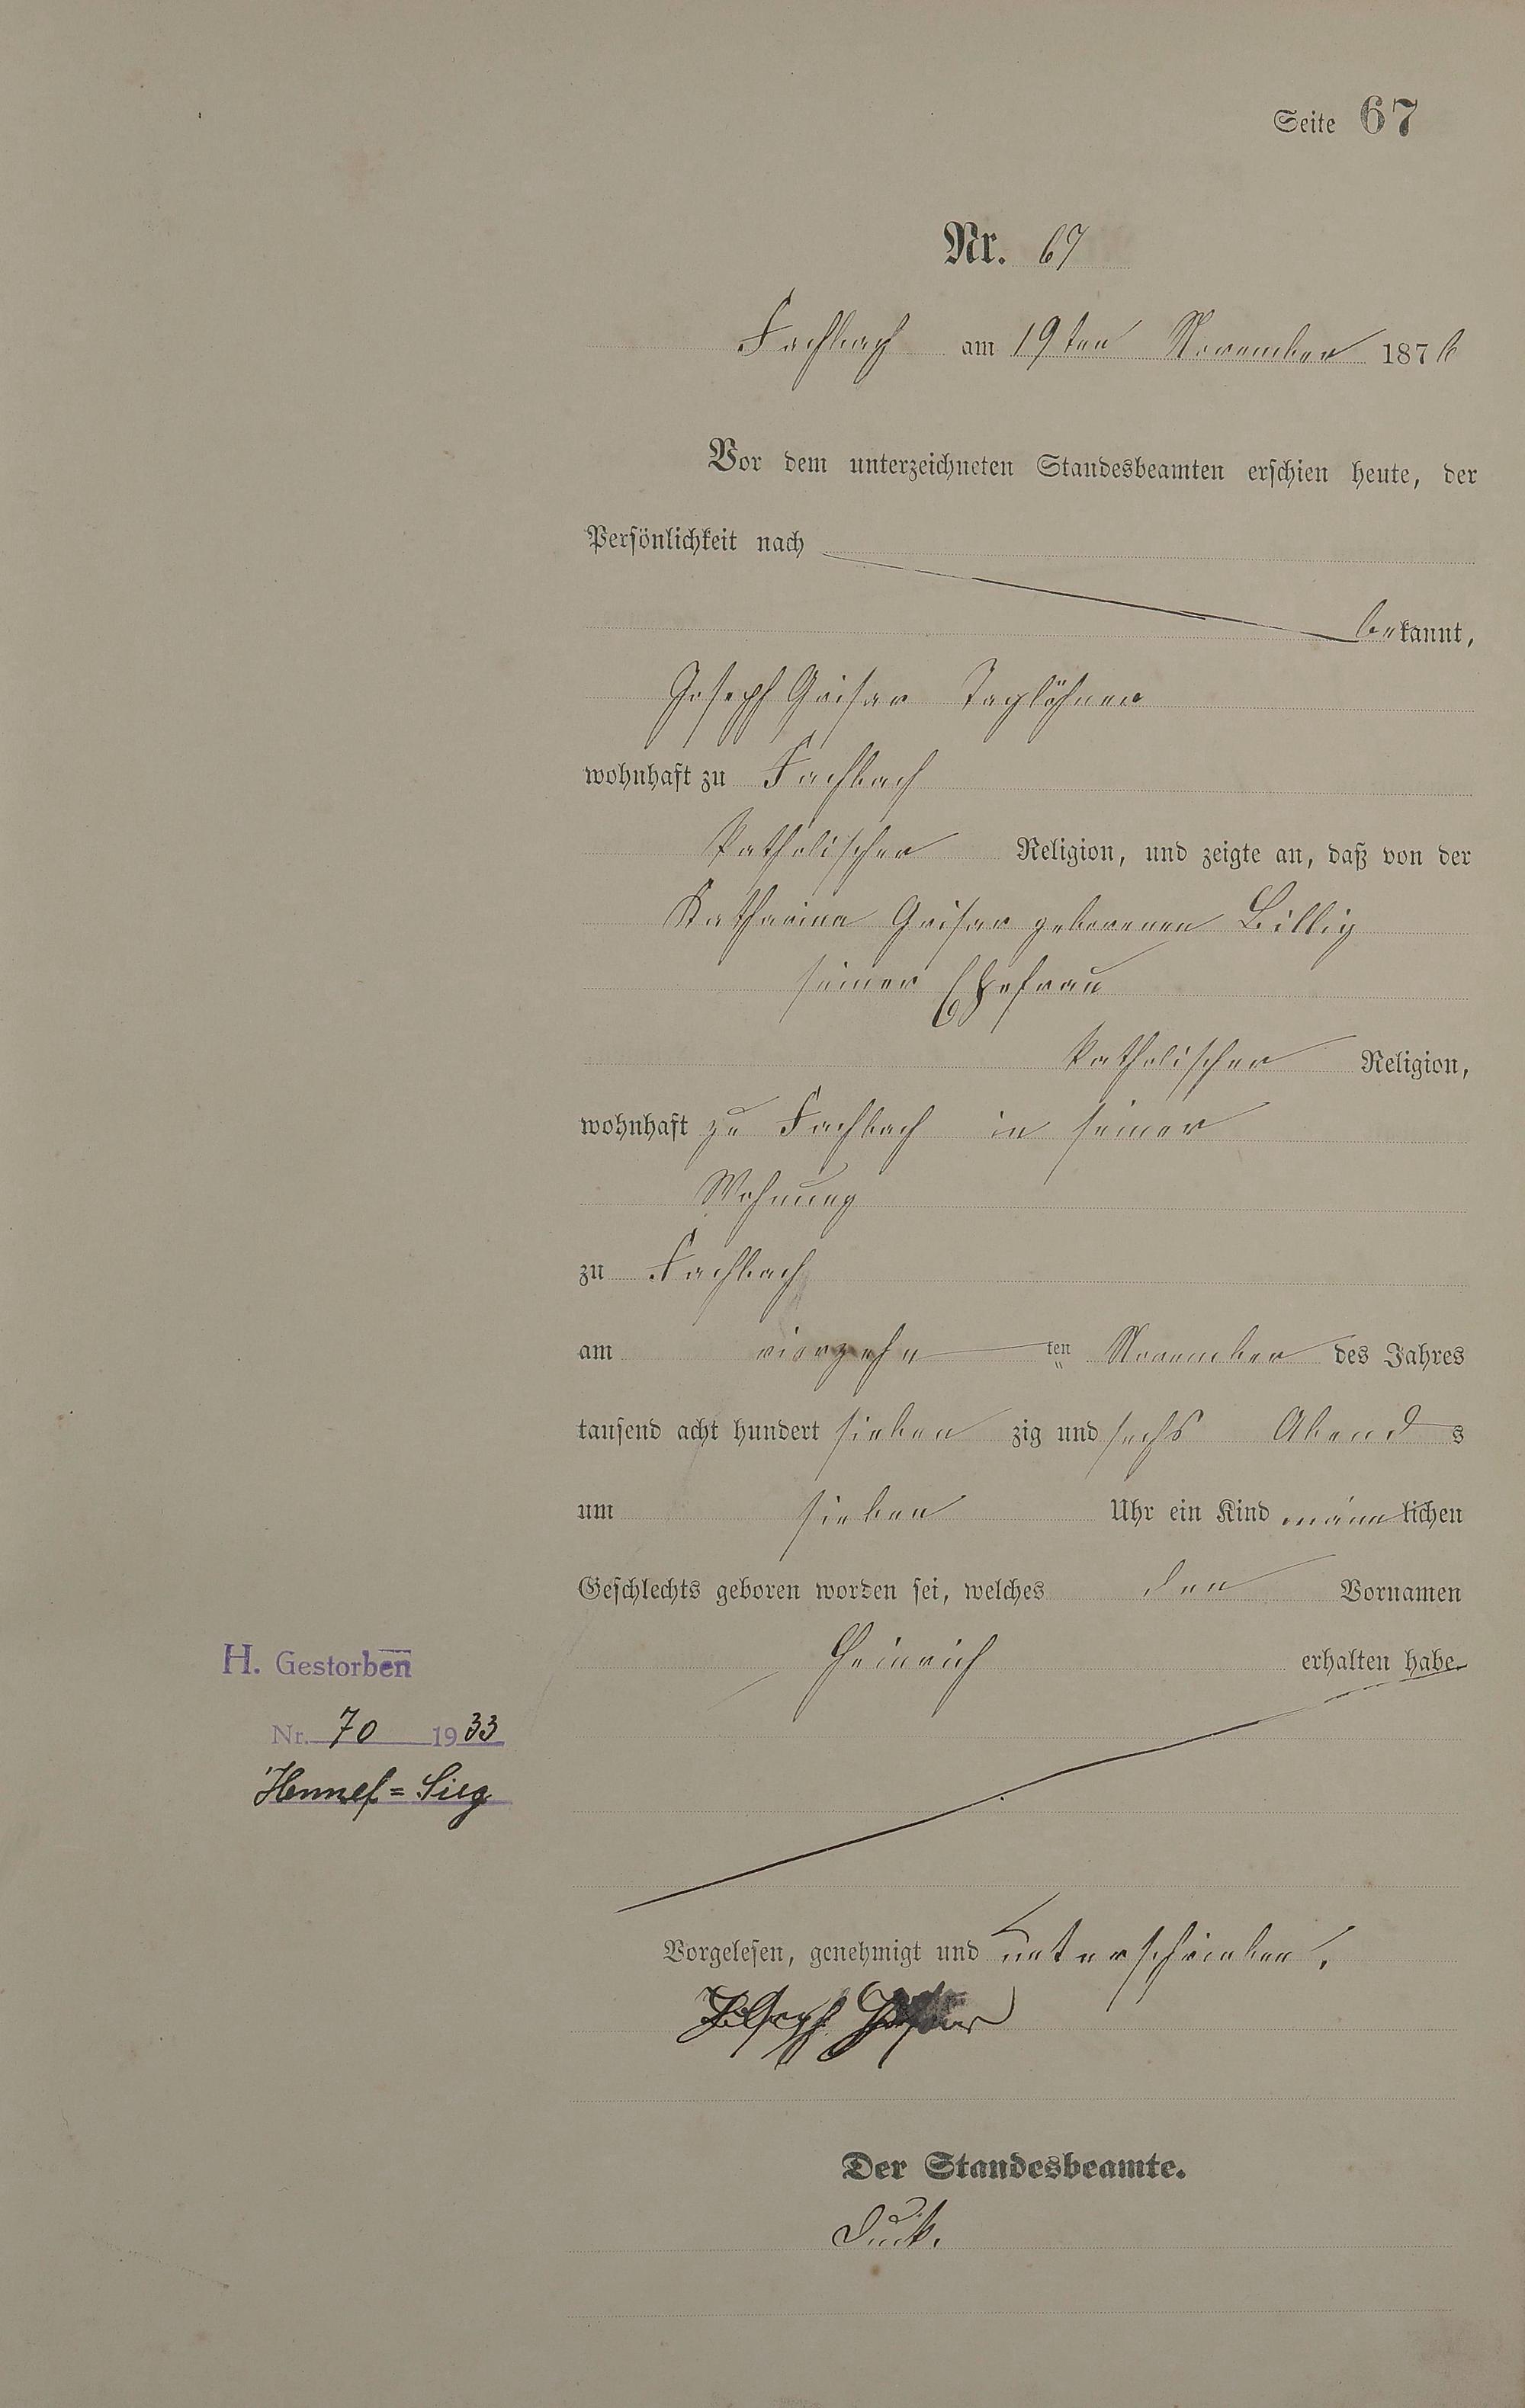 Seite 67
Nr. 67
Fachbach am 19ten November 1876
Vor dem unterzeichneten Standesbeamten erschien heute, der
Persönlichkeit nach
bekannt,
Joseph Grisar Taglöhner
wohnhaft zu Fachbach
katholischer Religion, und zeigte an, daß von der
Katharina Grisar geborenen Billig
seiner Ehefrau
katholischer Religion,
wohnhaft zu Fachbach in seiner
Wohnung
zu Fachbach
am vierzehnten November des Jahres
tausend acht hundert siebenzig und sechs Abends
um sieben Uhr ein Kind männlichen
Geschlechts geboren worden sei, welches den Vornamen
Heinrich erhalten habe
H. Gestorben
Nr. 70 1933
Hennef=Sieg
Vorgelesen, genehmigt und unterschrieben.
Joseph
Der Standesbeamte.